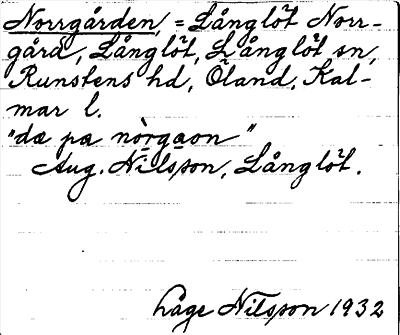 Norrgården, = Långlöt Norr-
gård, Långlöt, Långlöt sn,
Runstens hd, Öland, Kal-
mar l.
"dæ pæ nòrgaon"
Aug. Nilsson, Långlöt.
Låge Nilsson 1932